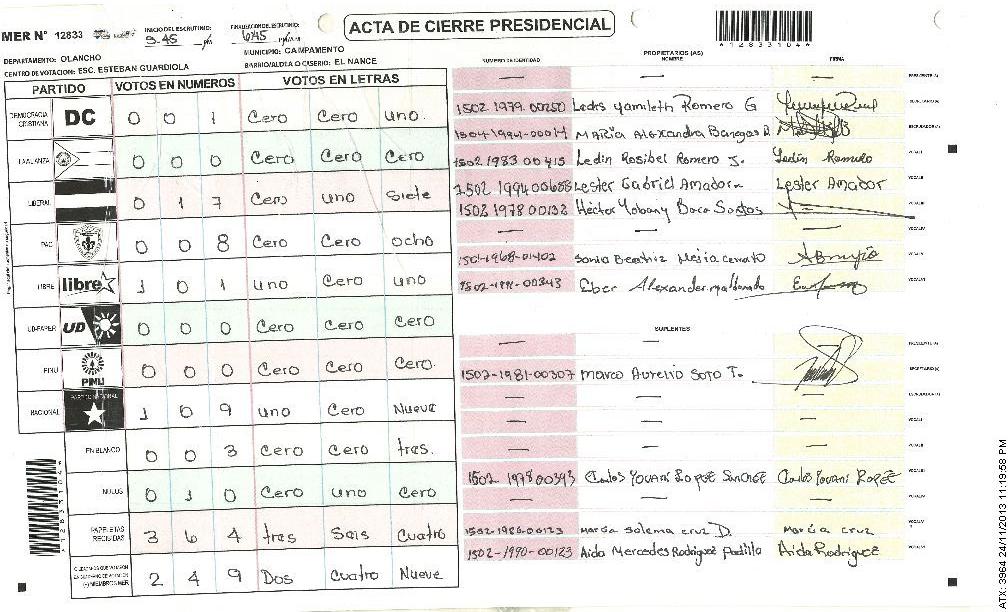 ACTA DE CIERRE PRESIDENCIAL
MER N° 12833
INICIO DEL ESCRUTINIO:
FINALIZACION DE ESCRUTINIO:
*128331046*
DEPARTAMENTO: OLANCHO
MUNICIPIO: CAMPAMENTO
CENTRO DE VOTACION: ESC. ESTEBAN GUARDIOLA
BARRIO/ALDEA O CASERIO: EL NANCE
PARTIDO VOTOS EN NUMEROS VOTOS EN LETRAS
DEMOCRACIA CRISTIANA DC 0 0 1 Cero Cero uno.
0 0 0 Cero Cero Cero
LIBERAL 0 1 7 Cero uno Siete
PAC 0 0 8 Cero Cero ocho
LIBRE libre 1 0 1 uno Cero uno
UD-FAPER UD 0 0 0 Cero Cero Cero
PINU PINU 0 0 0 Cero Cero Cero.
NACIONAL PARTIDO NACIONAL 1 0 9 uno Cero Nueve
EN BLANCO 0 0 3 Cero Cero tres.
NULOS 0 1 0 Cero uno Cero
PAPELETAS RECIBIDAS 3 6 4 tres Seis Cuatro
2 4 9 Dos Cuatro Nueve
NUMERO DE IDENTIDAD
PROPIETARIOS (AS)
NOMBRE
FIRMA
1502 1979 00250 Ledis Yamileth Romero G
1504 1994-00014 Maria Alexandra Banegas
1502 1983 00415 Ledin Rosibel Romero J. Ledin Romero
Lester Gabriel Amador Lester Amador
1502 1978 00132 Héctor Yobany Baca Santos
1501-1968-01402 Sonia Beatriz Mejia
Eber Alexander maldonado
SUPLENTES
1502-1981-00307 Marco Aurelio Soto T.
1502 1978 00393 Carlos Yovani Lopez Carlos Yovani Lopez
1502-1986-00123 Maria Solema Cruz D. Maria Cruz
1502-1990-00123 Aida Mercedes Rodriguez Padilla Aida Rodriguez
ATX: 3964 24/11/2013 11:19:58 PM